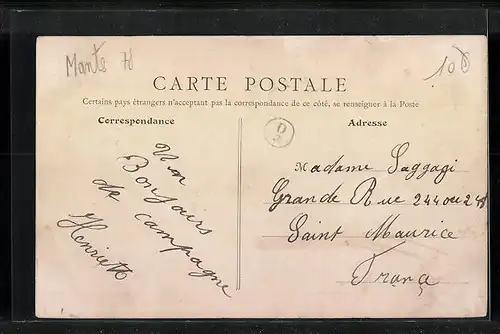 Mante 7d
10
CARTE POSTALE
Certains pays étrangers n'acceptant pas la correspondance de ce côté, se renseigner à la Poste
Correspondance
Un
Bonjairs
de campagne
Henriette
D
Adresse
Madame Saggagi
Grande Rue 244 ou 248
Saint Maurice
França